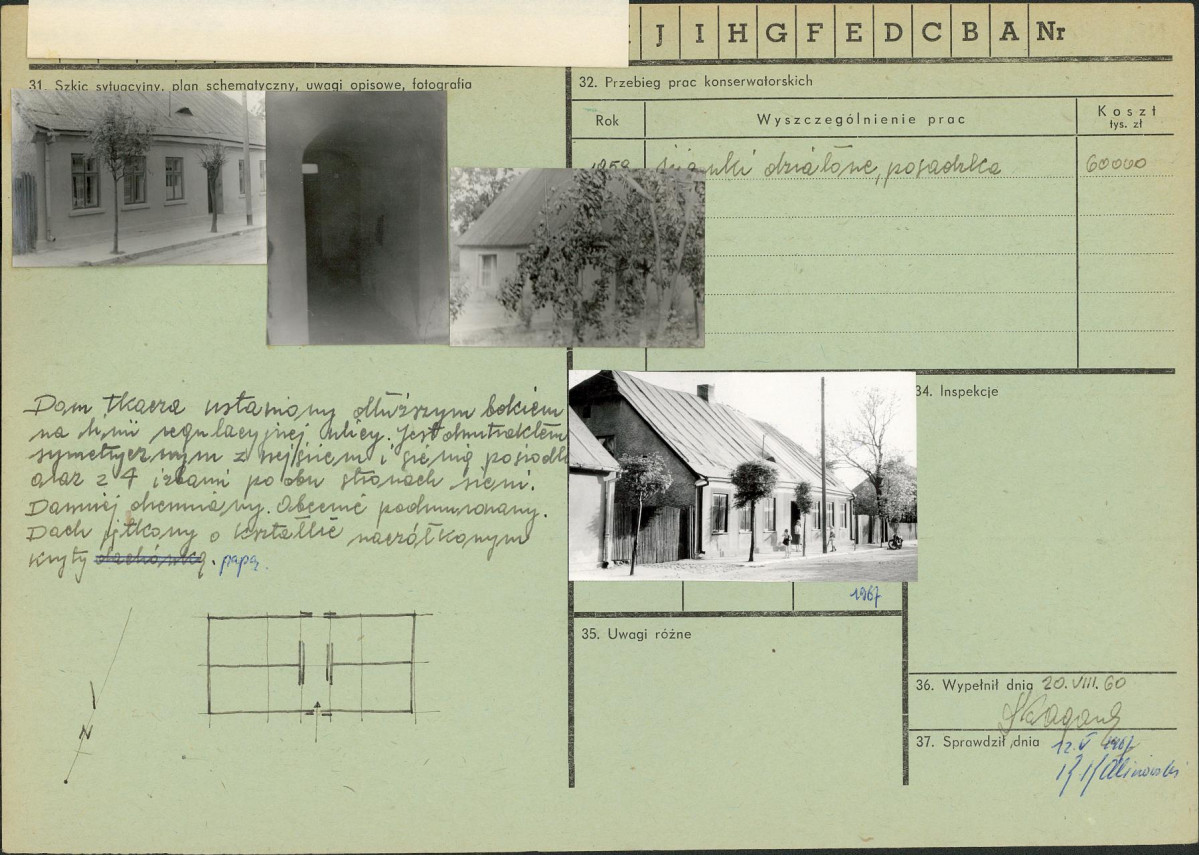 J I H G F E D C B A Nr
31. Szkic sytuacyjny, plan schematyczny, uwagi opisowe, fotografia
32. Przebieg prac konserwatorskich
Rok
Wyszczególnienie prac
Koszt
tys. zł
1959 ścianki działowe, posadzka 60000
Dom tkacza ustawiony dłuższym bokiem
na linii regulacyjnej ulicy. Jest dwutraktem
symetrycznym z wejściem i sienią pośrodku
oraz z 4 izbami po obu stronach sieni.
Dawniej drewniany. Obecnie podmurowany.
Dach o kształcie naczółkowym
kryty dachówką. papą.
N
34. Inspekcje
1967
35. Uwagi różne
36. Wypełnił dnia 20.VIII.60
37. Sprawdził dnia 12.V 1967
Kalinowski